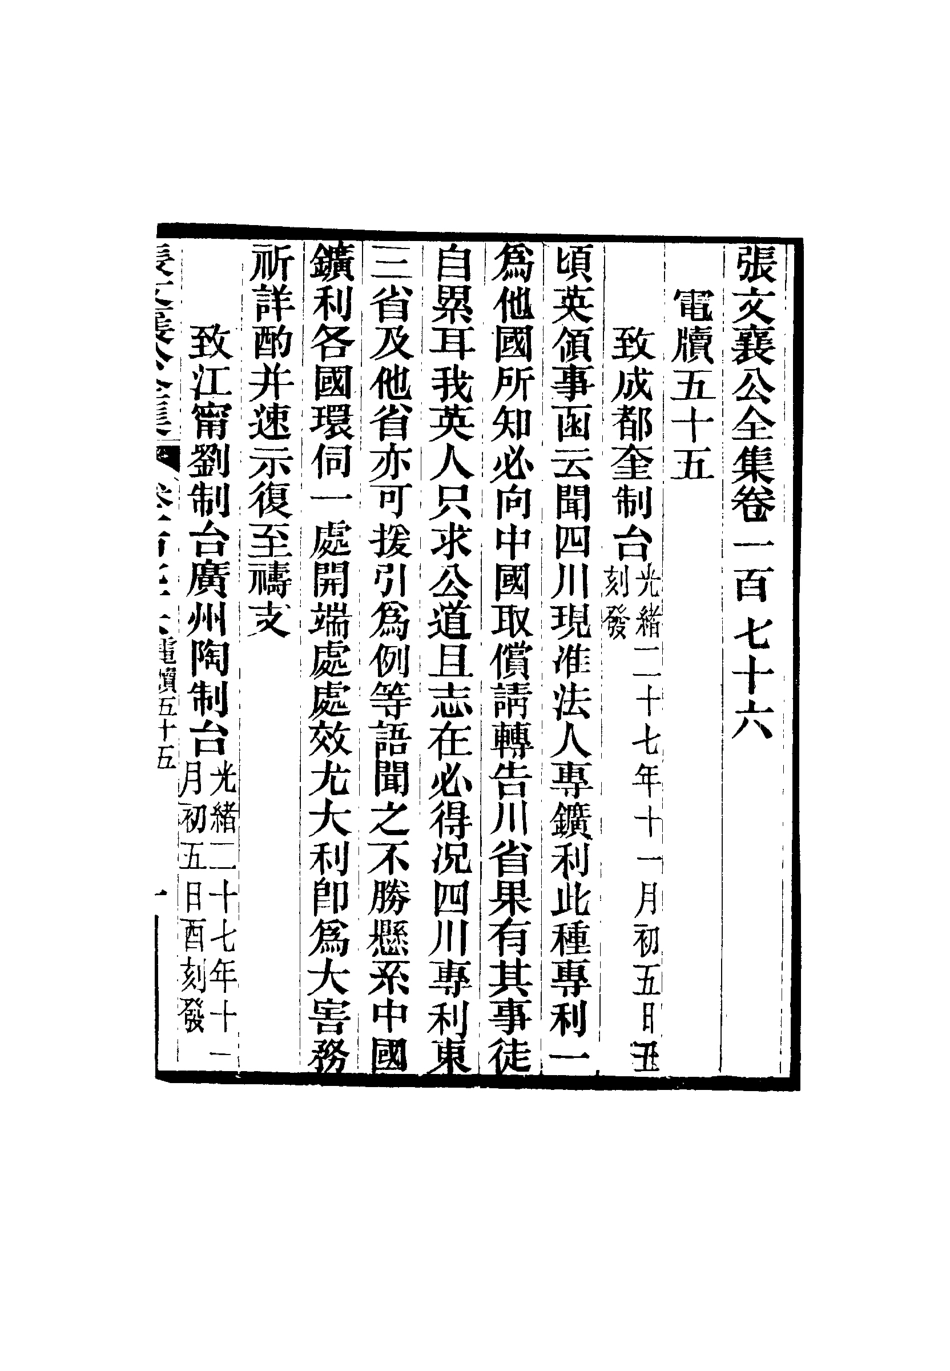 張文襄公全集卷一百七十六
電牘五十五
致成都奎制台光緒二十七年十一月初五日丑刻發
頃英領事函云聞四川現准法人專鑛利此種專利一
爲他國所知必向中國取償請轉告川省果有其事徒
自累耳我英人只求公道且志在必得况四川專利東
三省及他省亦可援引爲例等語聞之不勝懸系中國
鑛利各國環伺一處開端處處效尤大利卽爲大害務
祈詳酌并速示復至禱支
致江甯劉制台廣州陶制台光緒二十七年十一月初五日酉刻發
張文襄公全集 卷一百七十六 電牘五十五 一